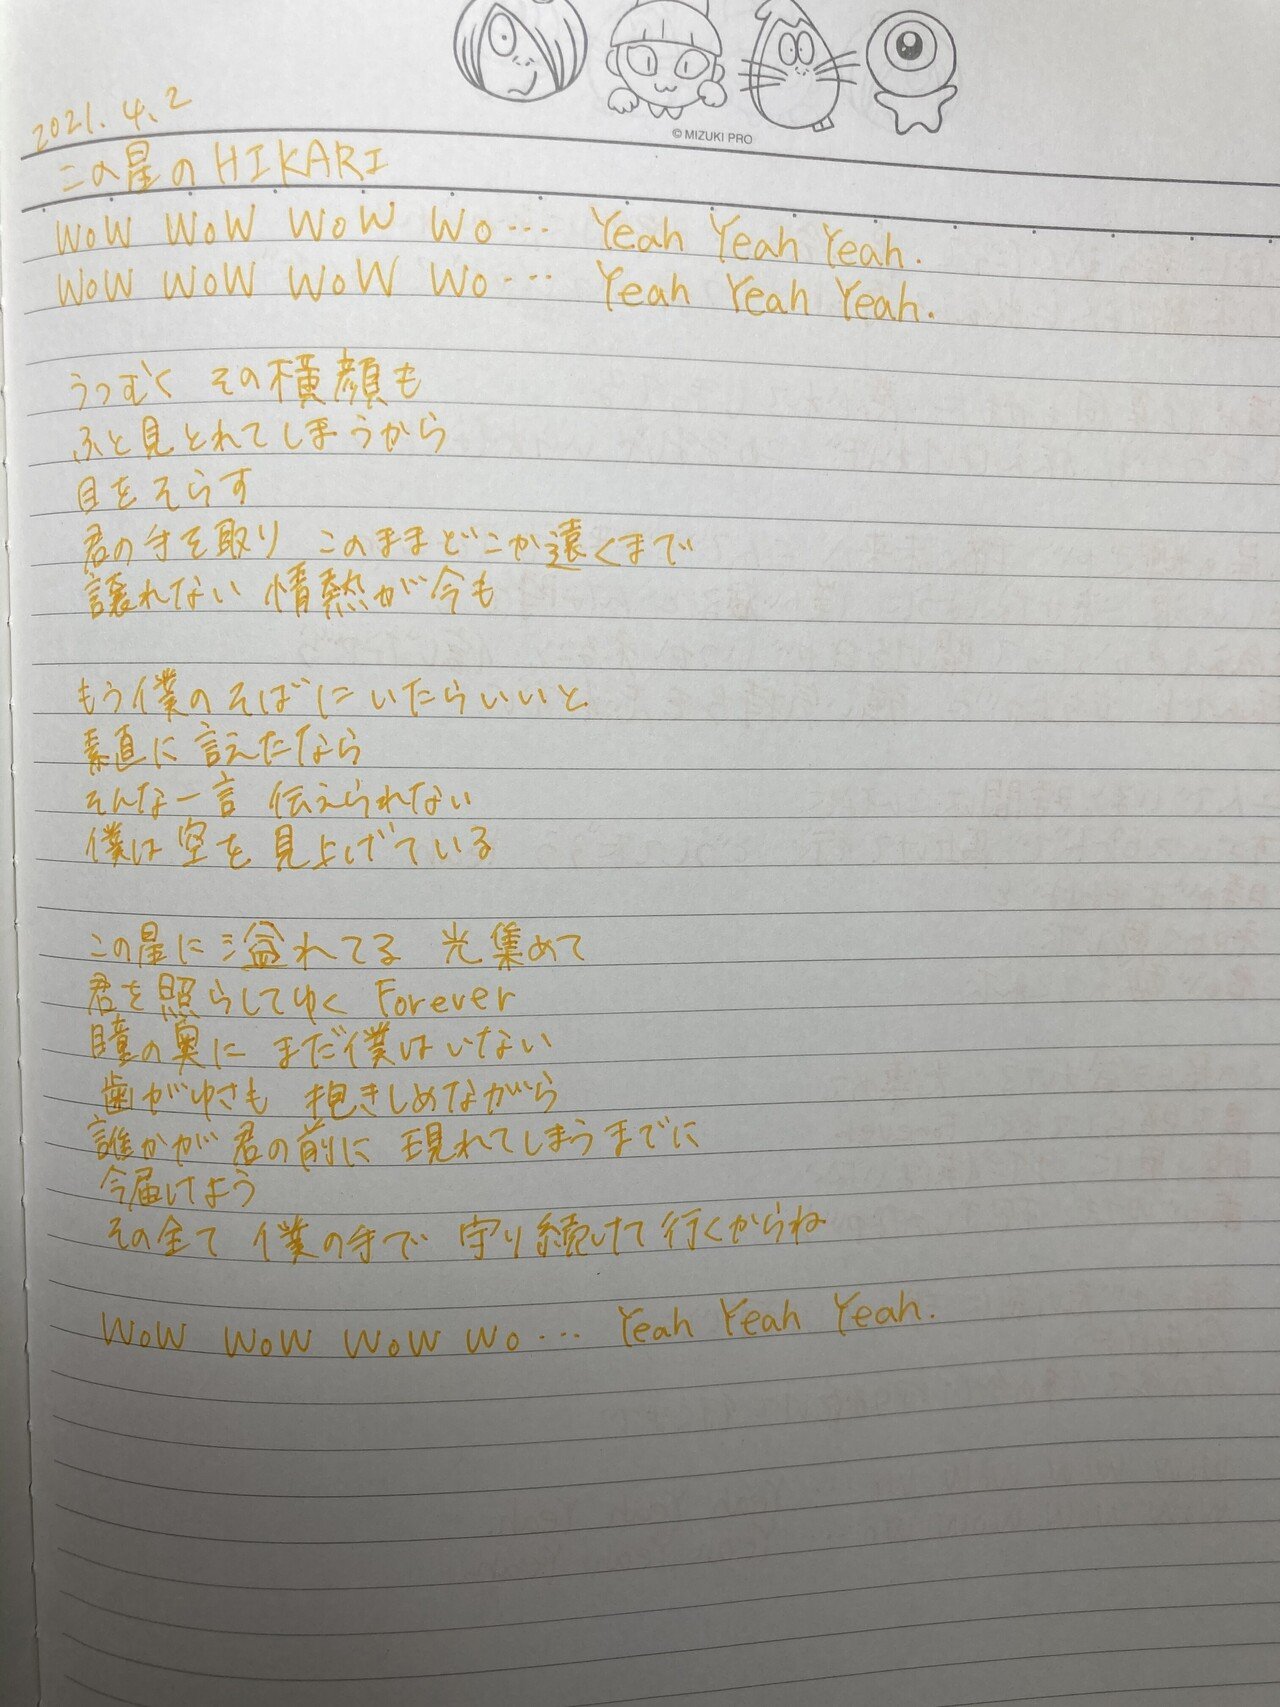 © MIZUKI PRO
2021.4.2
この星のHIKARI
WoW WoW WoW Wo... Yeah Yeah Yeah.
WoW WoW WoW Wo... Yeah Yeah Yeah.
うつむく その横顔も
ふと見とれてしまうから
目をそらす
君の手を取り このままどこか遠くまで
譲れない 情熱が今も
もう僕のそばにいたらいいと
素直に言えたなら
そんな一言 伝えられない
僕は空を見上げている
この星に溢れてる 光集めて
君を照らしてゆく Forever
瞳の奥に まだ僕はいない
歯がゆさも 抱きしめながら
誰かが君の前に 現れてしまうまでに
今届けよう
その全て 僕の手で 守り続けて行くからね
WoW WoW WoW Wo... Yeah Yeah Yeah.